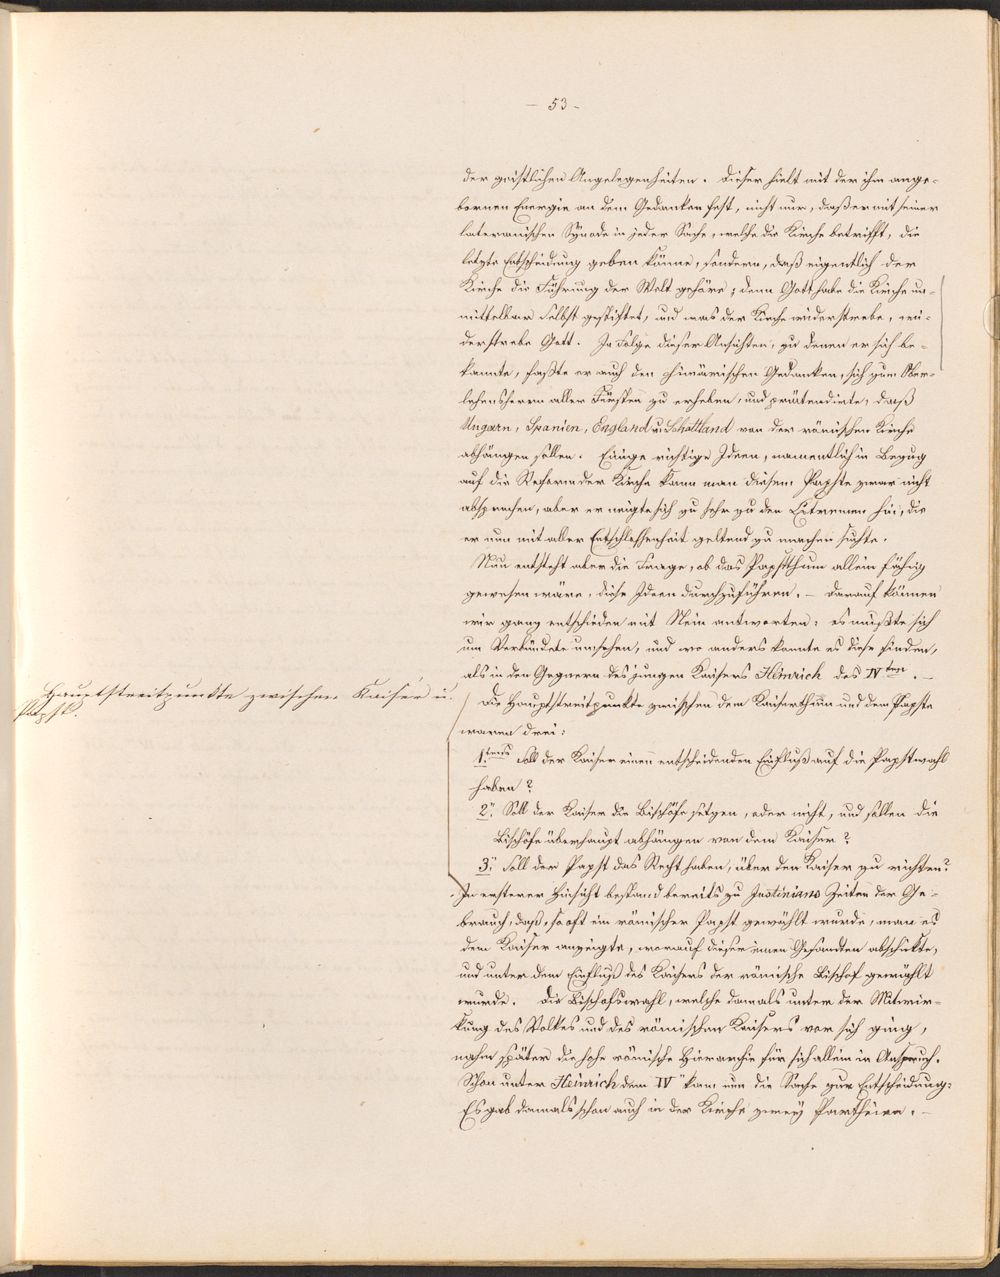 – 53 –
der geistlichen Angelegenheiten. Dieser hielt mit der ihm ange-
bornen Energie an dem Gedanken fest, nicht nur, daß er mit seiner
lateranischen Synode in jeder Sache, welche die Kirche betrifft, die
letzte Entscheidung geben könne, sondern, daß eigentlich der
Kirche die Führung der Welt gehöre; denn Gott habe die Kirche un-
mittelbar selbst gestiftet, und was der Kirche widerstrebe, wi-
derstrebe Gott. In Folge dieser Ansichten, zu denen er sich be-
kannte, faßte er auch den chimärischen Gedanken, sich zum Ober-
lehensherrn aller Fürsten zu erheben, und prätendirte, daß
Ungarn, Spanien, England u. Schottland von der römischen Kirche
abhängen sollen. Einige richtige Ideen, namentlich in Bezug
auf die Reform der Kirche kann man diesem Papste zwar nicht
absprechen, aber er neigte sich zu sehr zu den Extremen hin, die
er nun mit aller Entschlossenheit geltend zu machen suchte.
Nun entsteht aber die Frage, ob das Papstthum allein fähig
gewesen wäre, diese Ideen durchzuführen. – Darauf können
wir ganz entschieden mit Nein antworten: es mußte sich
um Verbündete umsehen, und wo anders konnte es diese finden,
als in den Gegnern des jungen Kaisers Heinrich des IV ten. –
Hauptstreitpunkte zwischen Kaiser u.
Papst.
Die Hauptstreitpunkte zwischen dem Kaiserthum und dem Papste
waren drei:
1. tens Soll der Kaiser einen entscheidenden Einfluß auf die Papstwahl
haben?
2." Soll der Kaiser die Bischöfe setzen, oder nicht, und sollen die
Bischöfe überhaupt abhängen von dem Kaiser?
3." Soll der Papst das Recht haben, über den Kaiser zu richten?
In ersterer Hinsicht bestand bereits zu Justinians Zeiten der Ge-
brauch, daß, so oft ein römischer Papst gewählt wurde, man es
dem Kaiser anzeigte, worauf dieser einen Gesandten abschickte,
und unter dem Einfluß des Kaisers der römische Bischof gewählt
wurde. Die Bischofswahl, welche damals unter der Mitwir-
kung des Volkes und des römischen Kaisers vor sich ging,
nahm später die hohe römische Hierarchie für sich allein in Anspruch.
Schon unter Heinrich dem IV " kam nun die Sache zur Entscheidung:
Es gab damals schon auch in der Kirche zwey Partheien. –